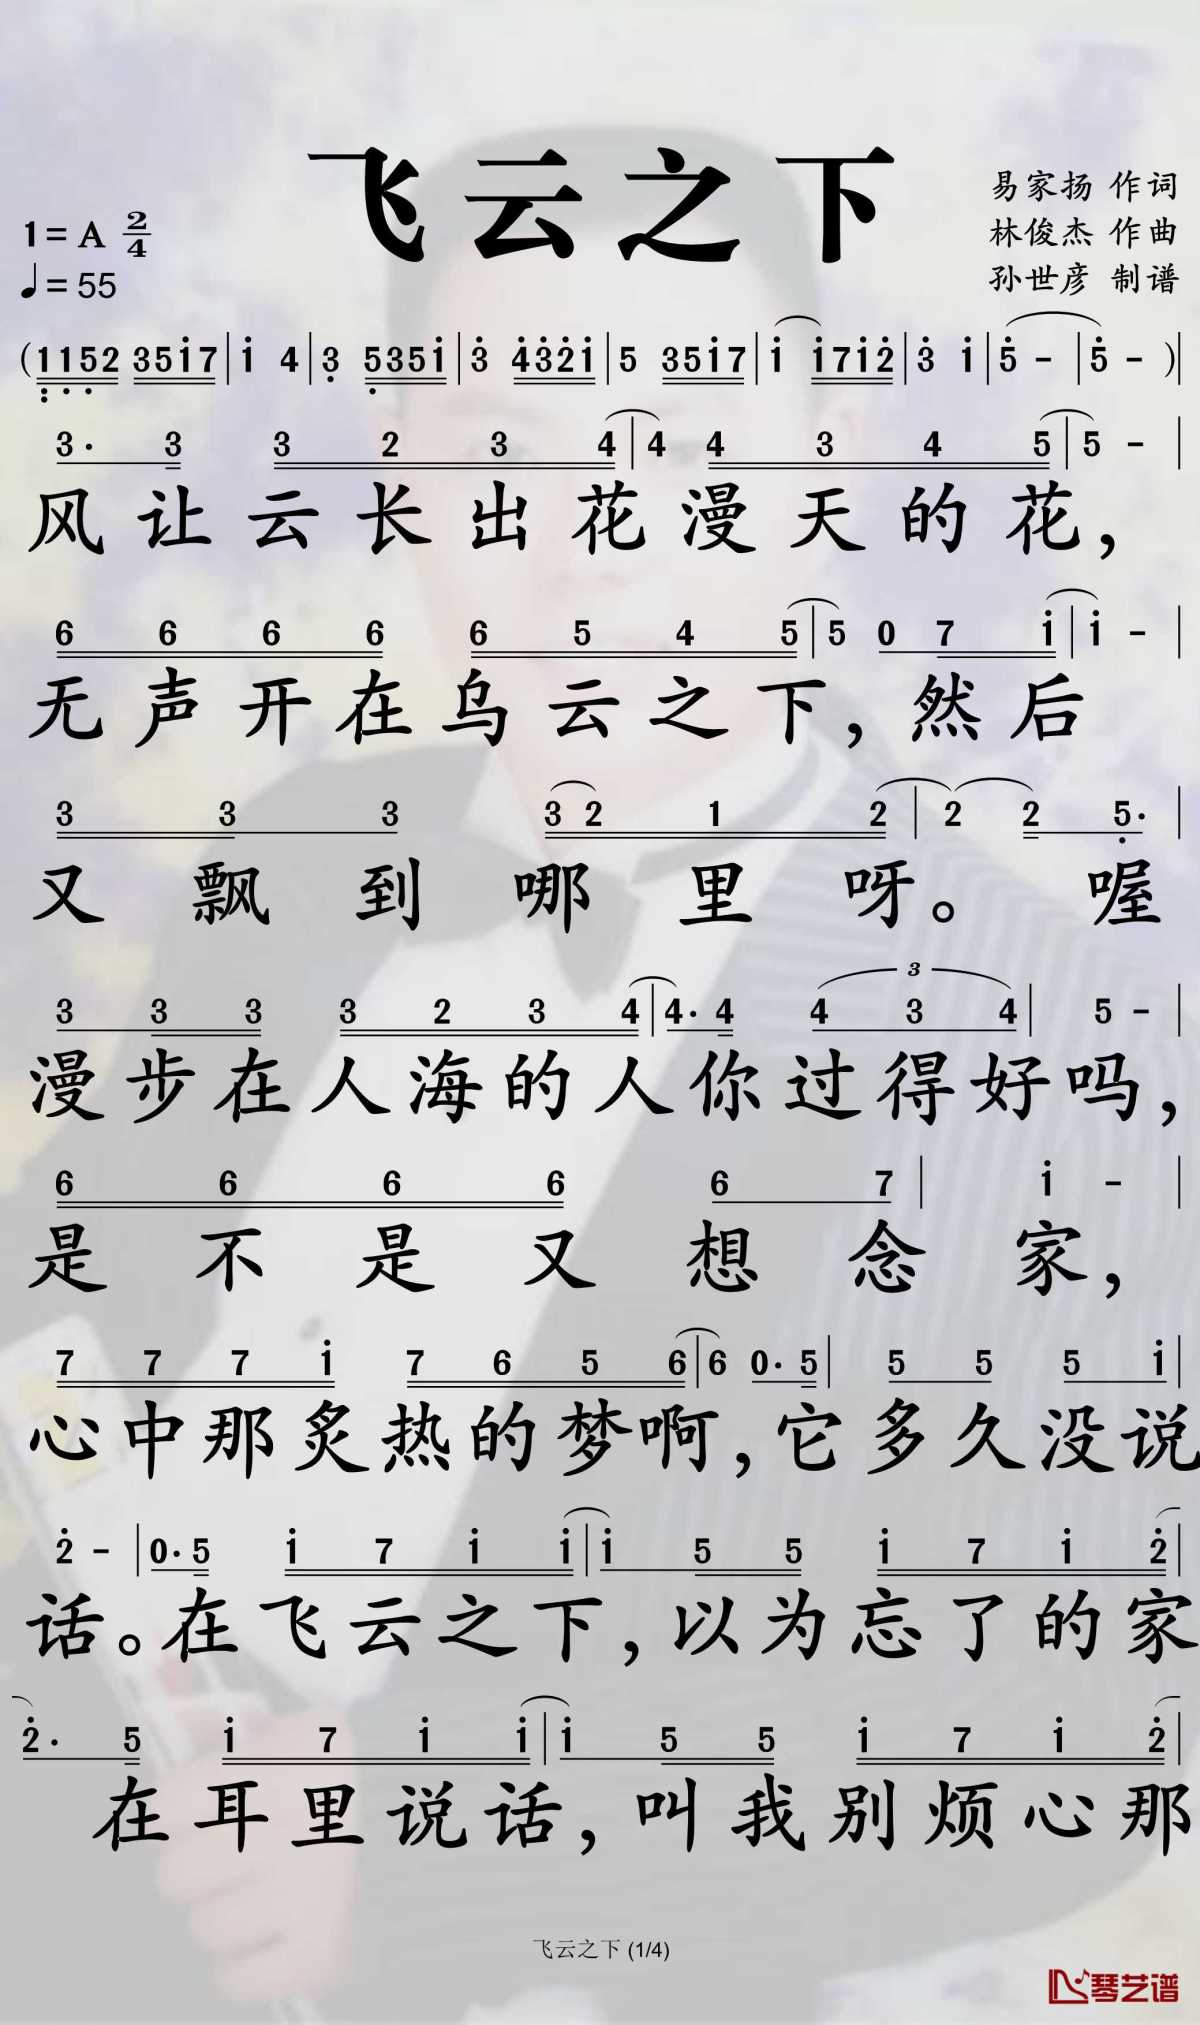 飞云之下
易家扬 作词
林俊杰 作曲
孙世彦 制谱
1=A 2/4
♩=55
(1152 3517|1 4|3 5351|3 4321|5 3517|1 1712|3 1|5 -|5 -)|
3· 3 3 2 3 4|4 4 3 4 5|5 -|
风让云长出花漫天的花，
6 6 6 6 6 5 4 5|5 0 7 1|1 -|
无声开在乌云之下，然后
3 3 3 3 2 1 2|2 2 5·|
又飘到哪里呀。喔
3
3 3 3 3 2 3 4|4· 4 4 3 4|5 -|
漫步在人海的人你过得好吗，
6 6 6 6 6 7|1 -|
是不是又想念家，
7 7 7 1 7 6 5 6|6 0· 5|5 5 5 1|
心中那炙热的梦啊，它多久没说
2 -|0· 5 1 7 1 1|1 5 5 1 7 1 2|
话。在飞云之下，以为忘了的家
2· 5 1 7 1 1|1 5 5 1 7 1 2|
在耳里说话，叫我别烦心那
飞云之下 (1/4)
琴艺谱